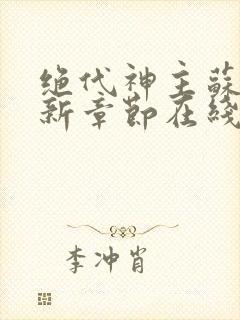 绝代神主蘇
新章節在綫
李冲肖